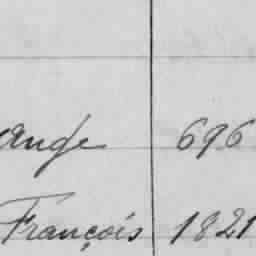 ange 696
François 1821